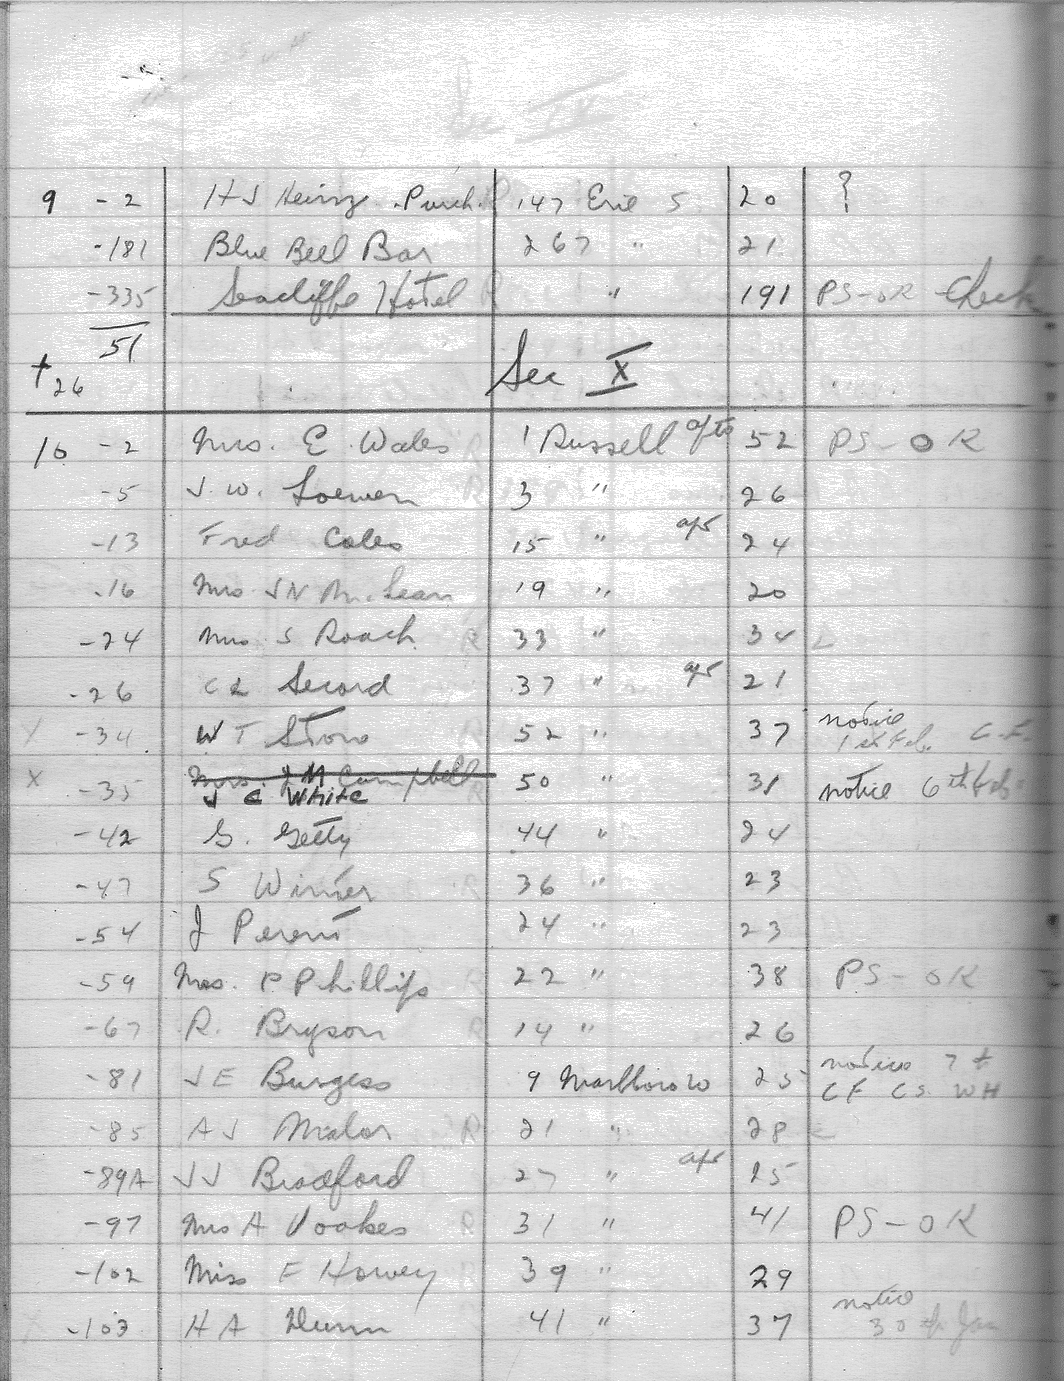 9 - 2 H J Heinz Purch. 147 Erie S. 20 ?
-181 Blue Bell Bar 267 " 21
-335 Seacliffe Hotel " 191 PS-OK Check
51
+ 26 Sec X
10 - 2 Mrs. E. Wales 1 Russell apts 52 PS-OK
-5 J. W. Loewen 3 " 26
-13 Fred Coles 15 " apt 24
-16 Mrs. J N McLean 19 " 20
-24 Mrs S Roach 33 " 34
-26 C L Secord 37 " apt 21
-34 W T 52 " 37 notice 1st Feb. C.F.
x -35 Mrs. J M Campbell 50 " 31 notice 6th Feb
J C White
-42 G. Getty 44 " 24
-47 S Winter 36 " 23
-54 J 24 " 23
-59 Mrs. P Phillips 22 " 38 PS-OK
-67 R. Bryson 14 " 26
-81 J E Burgess 9 Marlboro W 25 notices 7
CF CS. WH
-85 A J Malar 21 " 28
-89A JJ Bradford 27 " apt 25
-97 Mrs A Vookes 31 " 41 PS-OK
-102 Miss E Howey 39 " 29
-103 H A Dunn 41 " 37 notice
30 Jan